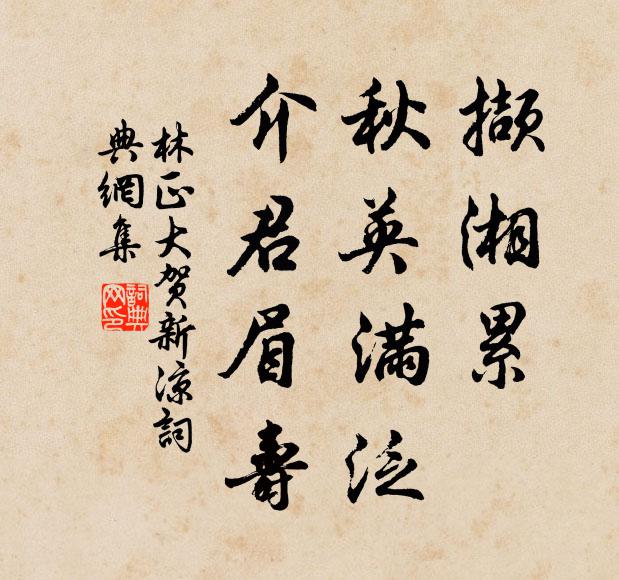 擷湘累
秋英滿泛
介君眉壽
林正大贺新涼詞
典網集
詞典网印